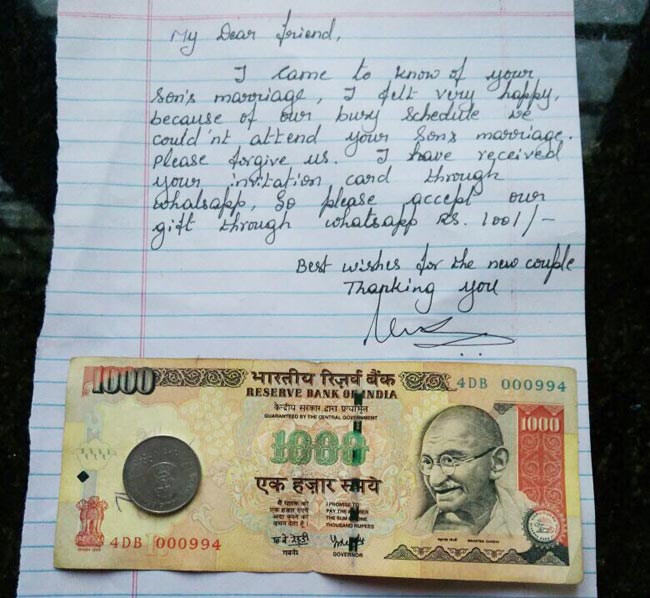 My Dear friend,
I came to know of your
Son's marriage, I felt very happy,
because of our busy schedule we
could'nt attend your Son's marriage.
Please forgive us. I have received
your invitation card through
whatsapp, So please accept our
gift through whatsapp Rs. 1001/-
Best wishes for the new couple
Thanking you
1000
भारतीय रिज़र्व बैंक
4DB 000994
RESERVE BANK OF INDIA
केन्द्रीय सरकार द्वारा प्रत्याभूत
GUARANTEED BY THE CENTRAL GOVERNMENT
1000
1000
एक हज़ार रुपये
मैं धारक को
एक हज़ार रुपये
अदा करने का
वचन देता हूँ
I PROMISE TO
PAY THE BEARER
THE SUM OF ONE
THOUSAND RUPEES
4DB 000994
गवर्नर
GOVERNOR
महात्मा गांधी
MAHATMA GANDHI